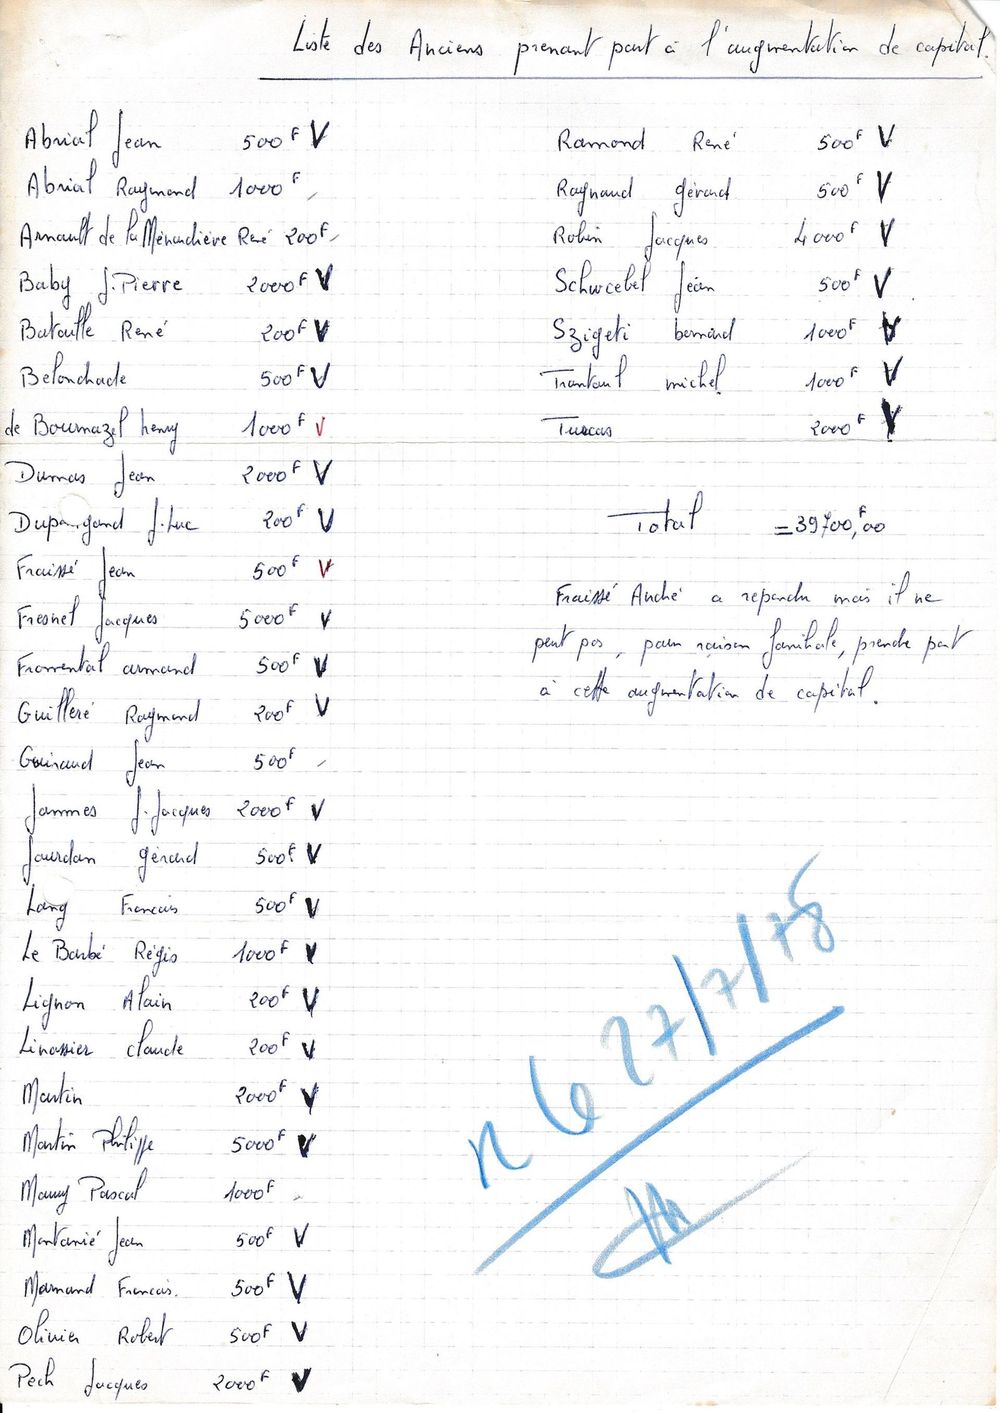 Liste des Anciens prenant part à l'augmentation de capital.
Abrial Jean 500F V
Abrial Raymond 1000F
Arnault de la Ménardière René 200F
Baby J.Pierre 2000F V
Bataille René 200F V
Belonchade 500F V
de Bournazel henry 1000F V
Dumas Jean 2000F V
J.Luc 200F V
Fraissé Jean 500F V
Fresnel Jacques 5000F V
Fromental armand 500F V
Guilleré Raymond 200F V
Guiraud Jean 500F
Jammes J.Jacques 2000F V
Jourdan gérard 500F V
Lang Francois 500F V
Le Barbé Régis 1000F V
Lignon Alain 200F V
Linassier claude 200F V
Martin 2000F V
Martin Philippe 5000F V
Pascal 1000F
Jean 500F V
Francois. 500F V
Olivier Robert 500F V
Pech Jacques 2000F V
Ramond René 500F V
Raynaud gérard 500F V
Robin Jacques 4000F V
Schwebel Jean 500F V
Szigeti bernard 1000F V
michel 1000F V
Turcas 2000F V
Total = 39700,F00
Fraissé André a repondu mais il ne
peut pas, pour raison familiale, prendre part
à cette augmentation de capital.
27/7/78